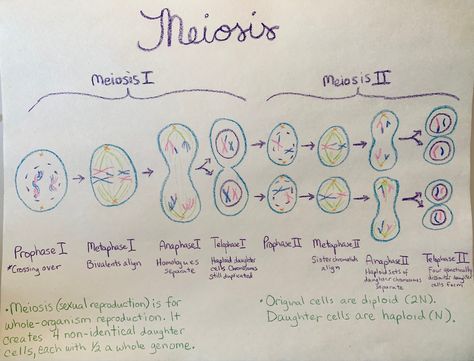 Meiosis
Meiosis I
Meiosis II
Prophase I
*Crossing over
Metaphase I
Bivalents align
Anaphase I
Homologues
separate
Telophase I
Haploid daughter
cells. Chromosomes
still duplicated
Prophase II
Metaphase II
Sister chromatids
align
Anaphase II
Haploid sets of
daughter chromosomes
separate
Telophase II
Four genetically
dissimilar daughter
cells form
• Meiosis (sexual reproduction) is for
whole-organism reproduction. It
creates 4 non-identical daughter
cells, each with 1/2 a whole genome.
• Original cells are diploid (2N).
Daughter cells are haploid (N).